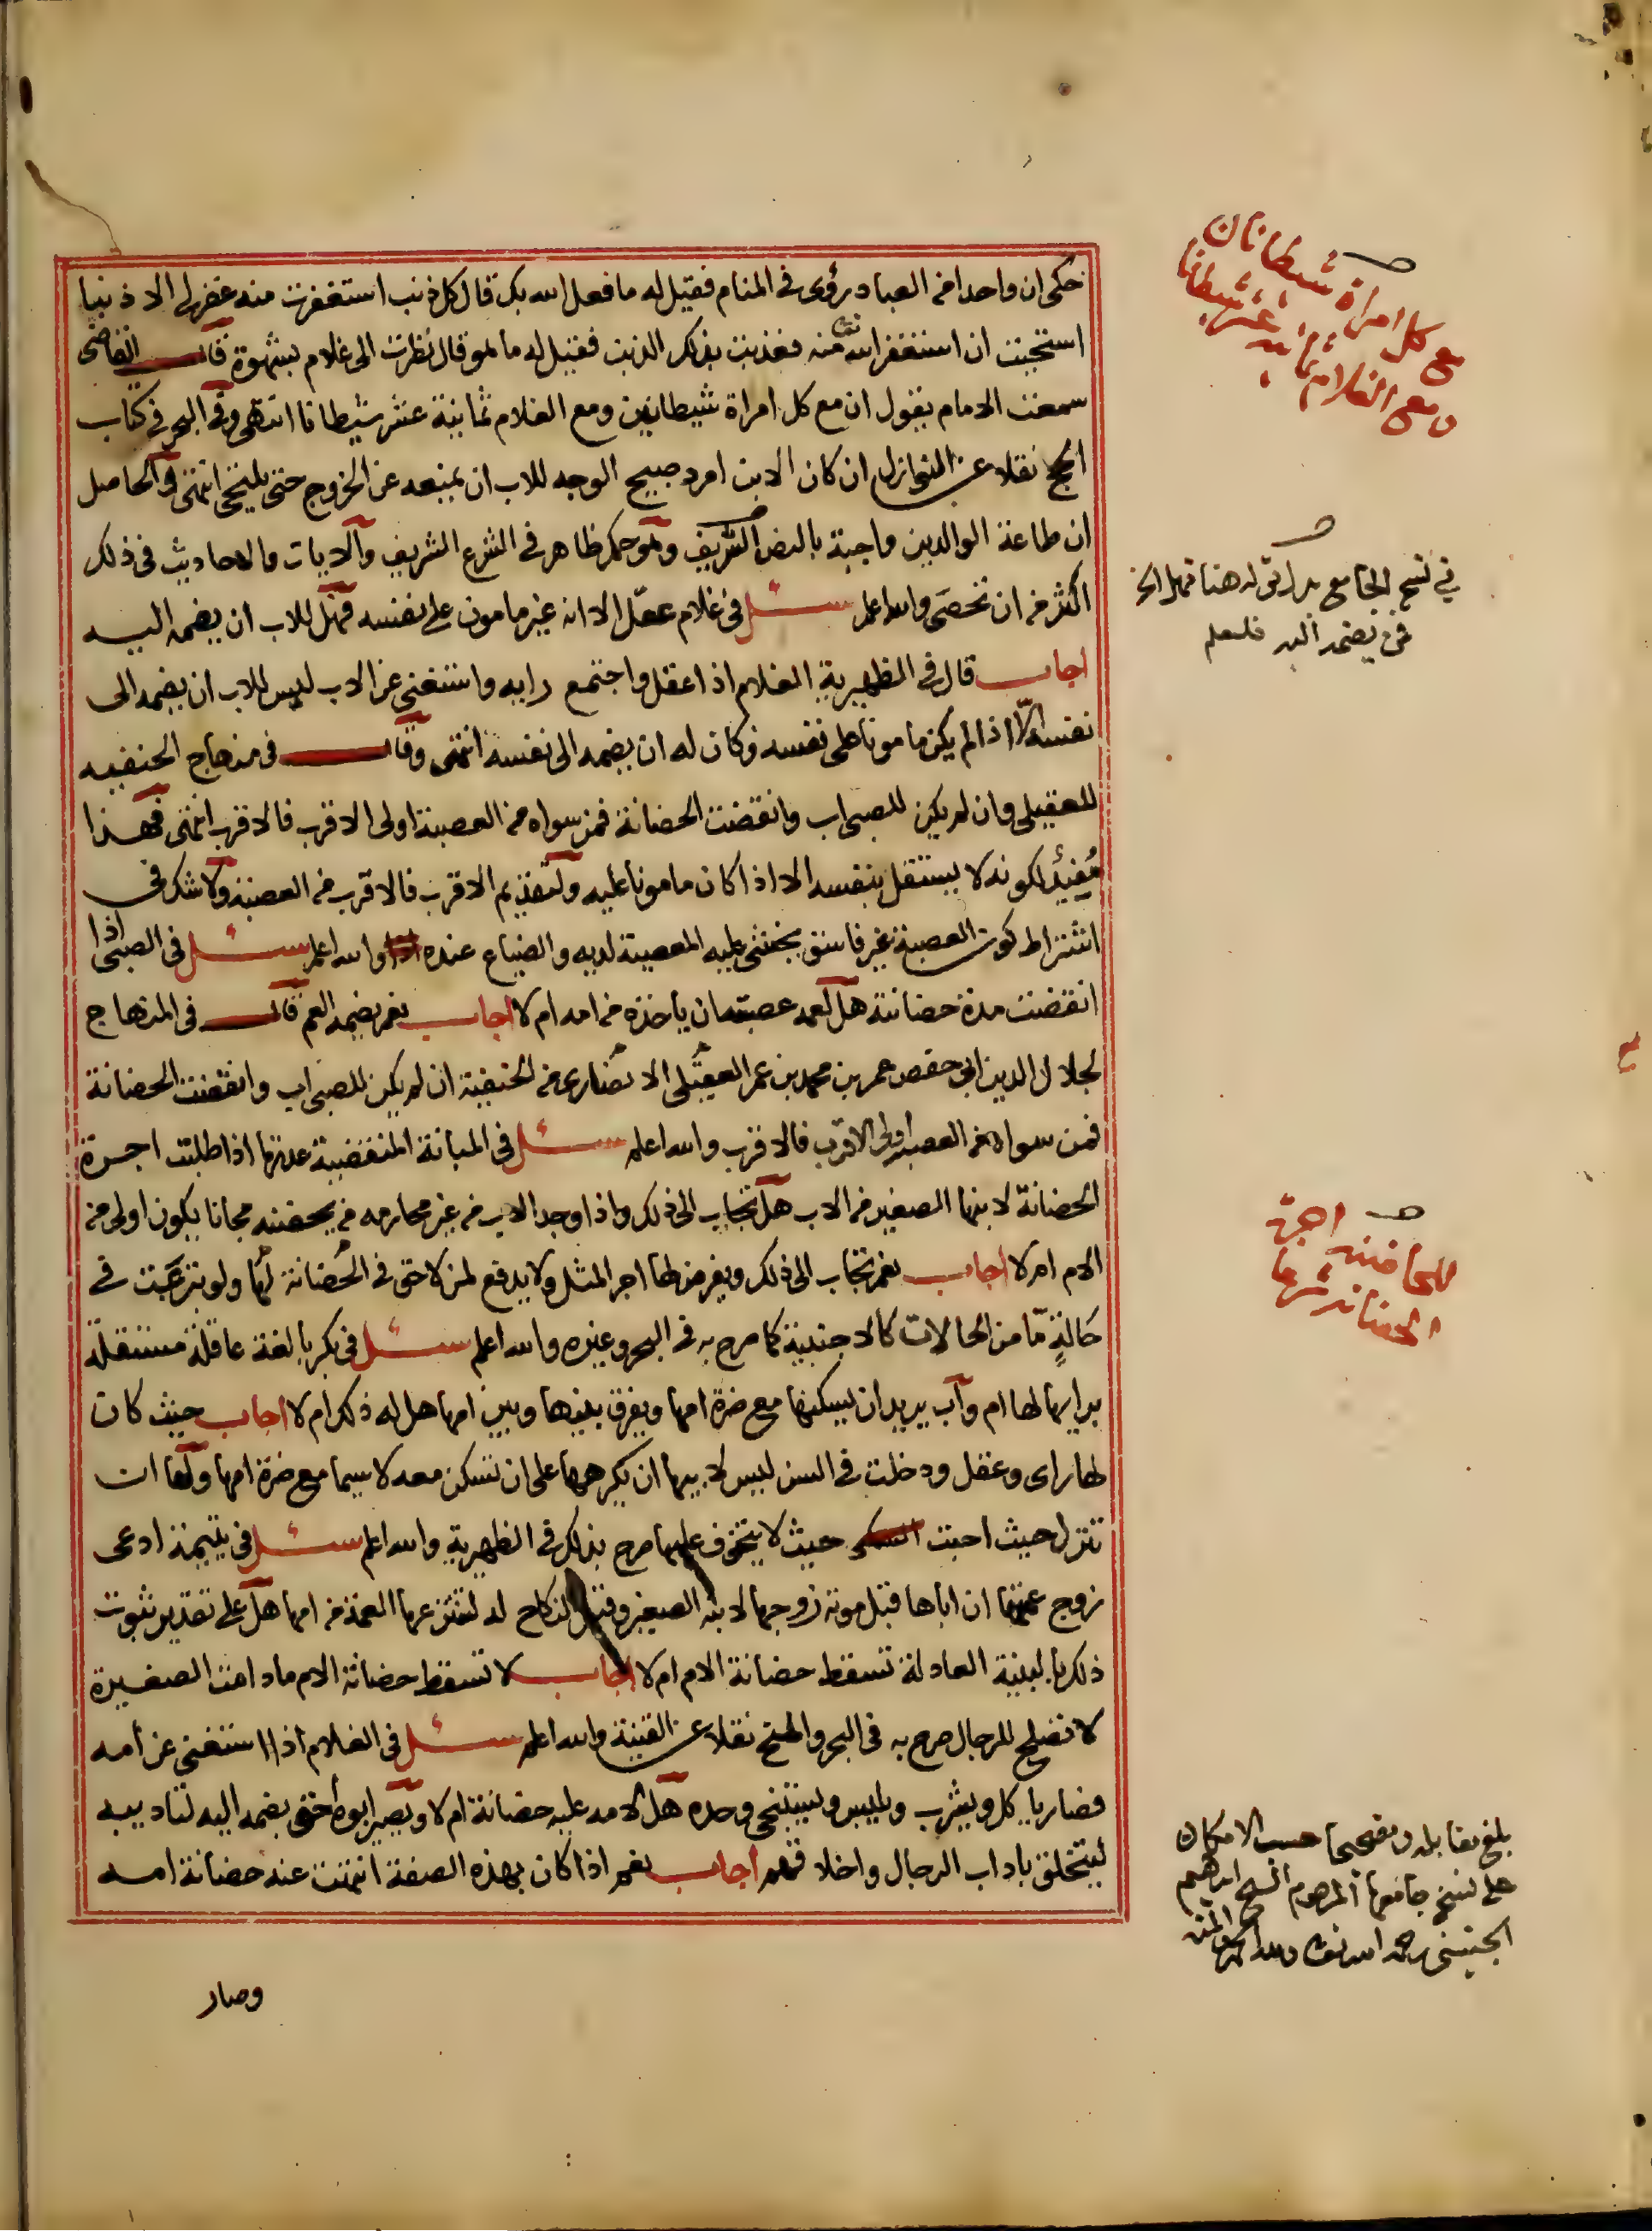 حكى ان واحدا من العباد رؤى في المنام فقيل له ما فعل الله بك قال كل ذنب استغفرت منه غفر لي الا ذنبا
استحييت ان استغفر الله تعالى منه فعذبت بذلك الذنب فقيل له ما هو قال نظرت الى غلام بشهوة قال القاضي
سمعت الامام يقول ان مع كل امراة شيطانين ومع الغلام ثمانية عشر شيطانا انتهى وفي البحر في كتاب
الحج نقلا عن النوازل ان كان الابن امرد صبيح الوجه للاب ان يمنعه عن الخروج حتى يلتحي انتهى والحاصل
ان طاعة الوالدين واجبة بالنص الشريف وهو حكم ظاهر في الشرع الشريف والايات والاحاديث في ذلك
اكثر من ان تحصى والله اعلم سئل في غلام عقل الا انه غير مامون على نفسه فهل للاب ان يضمه اليه
اجاب قال في الظهيرية الغلام اذا عقل واجتمع رايه واستغنى عن الاب ليس للاب ان يضمه الى
نفسه الا اذا لم يكن مامونا على نفسه وكان له ان يضمه الى نفسه انتهى وقال في منهاج الحنفيه
للعقيلي وان لم يكن للصبي اب وانقضت الحضانة فمن سواه من العصبة اولى الاقرب فالاقرب انتهى فهذا
مُفيدٌ لكونه لا يستقل بنفسه الا اذا كان مامونا عليه ولتقديم الاقرب فالاقرب من العصبة ولا شك في
اشتراط كون العصبة غير فاسق يخشى عليه المعصية لديه والضياع عنده والله اعلم سئل في الصبي اذا
انقضت مدة حضانته هل لعمه عصبته ان ياخذه من امه ام لا اجاب نعم يضمه العم قال في المنهاج
لجلال الدين ابي حفص عمر بن محمد بن عمر العقيلي الانصاري من الحنفية ان لم يكن للصبي اب وانقضت الحضانة
فمن سواه من العصبة اولى الاقرب فالاقرب والله اعلم سئل في المبانة المنقضية عدتها اذا طلبت اجرة
الحضانة لابنها الصغير من الاب هل تجاب الى ذلك واذا وجد الاب من غير محارمه من يحضنه مجانا يكون اولى من
الام ام لا اجاب نعم تجاب الى ذلك ويفرض لها اجر المثل ولا يدفع لمن لا حق في الحضانة لها ولو تبرعت في
حَالةٍ مّا من الحالات كالاجنبية كما صرح به في البحر وغيره والله اعلم سئل في بكر بالغة عاقلة مستقلة
برايها لها ام واب يريد ان يسكنها مع ضرة امها ويفرق بينها وبين امها هل له ذلك ام لا اجاب حيث كان
لها راى وعقل ودخلت في السن ليس لابيها ان يكرهها على ان تسكن معه لا سيما مع ضرة امها ولها ان
تنزل حيث احبت حيث لا يتخوف عليها صرح بذلك في الظهيرية والله اعلم سئل في يتيمة ادعى
زوج عمتها ان اباها قبل موته زوجها لابنه الصغير وقبل النكاح له لتنتزعها العمة من امها هل على تقدير ثبوت
ذلك بالبينة العادلة تسقط حضانة الام ام لا اجاب لا تسقط حضانة الام ما دامت الصغيرة
لا تصلح للرجال صرح به في البحر والمنح نقلا عن القنية والله اعلم سئل في الغلام اذا استغنى عن امه
فصار ياكل ويشرب ويلبس ويستنجي وحده هل لامه عليه حضانة ام لا ويصير ابوه احق بضمه اليه لتاديبه
ليتخلق باداب الرجال واخلاقهم اجاب نعم اذا كان بهذه الصفة انتهت عنه حضانة امه
وصار
مع كل امراة شيطانان
ومع الغلام ثمانية عشر شيطانا
في نسخ الجامع بدل قوله هنا فهل الخ
فمن يضمه اليه فليعلم
للحاضنة اجرة
الحضانة شرعا
بلغ مقابلة وتصحيحا حسب الامكان
على نسخ جامعها المرحوم الشيخ ابراهيم
الجنيني رحمه الله تعالى ولله الحمد والمنة